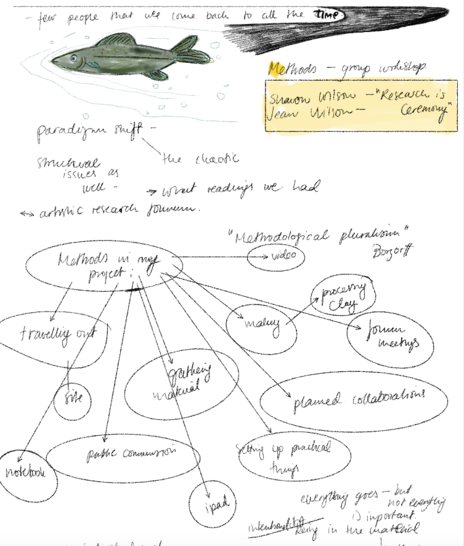 - few people that we come back to all the TIME
Methods - group workshop
Shawn Wilson - "Research is
Jean Wilson - Ceremony"
paradigm shift -
the chaotic
structural
issues as
well -
→ what readings we had
↔ artistic research forum.
"Methodological pluralism"
Methods in my
project:
video
processing
clay
making
forum
meetings
travelling out
gathering
material
site
planned collaborations
public commission
setting up practical
things
notebook
ipad
everything goes - but
not everything
is important.
being in the material